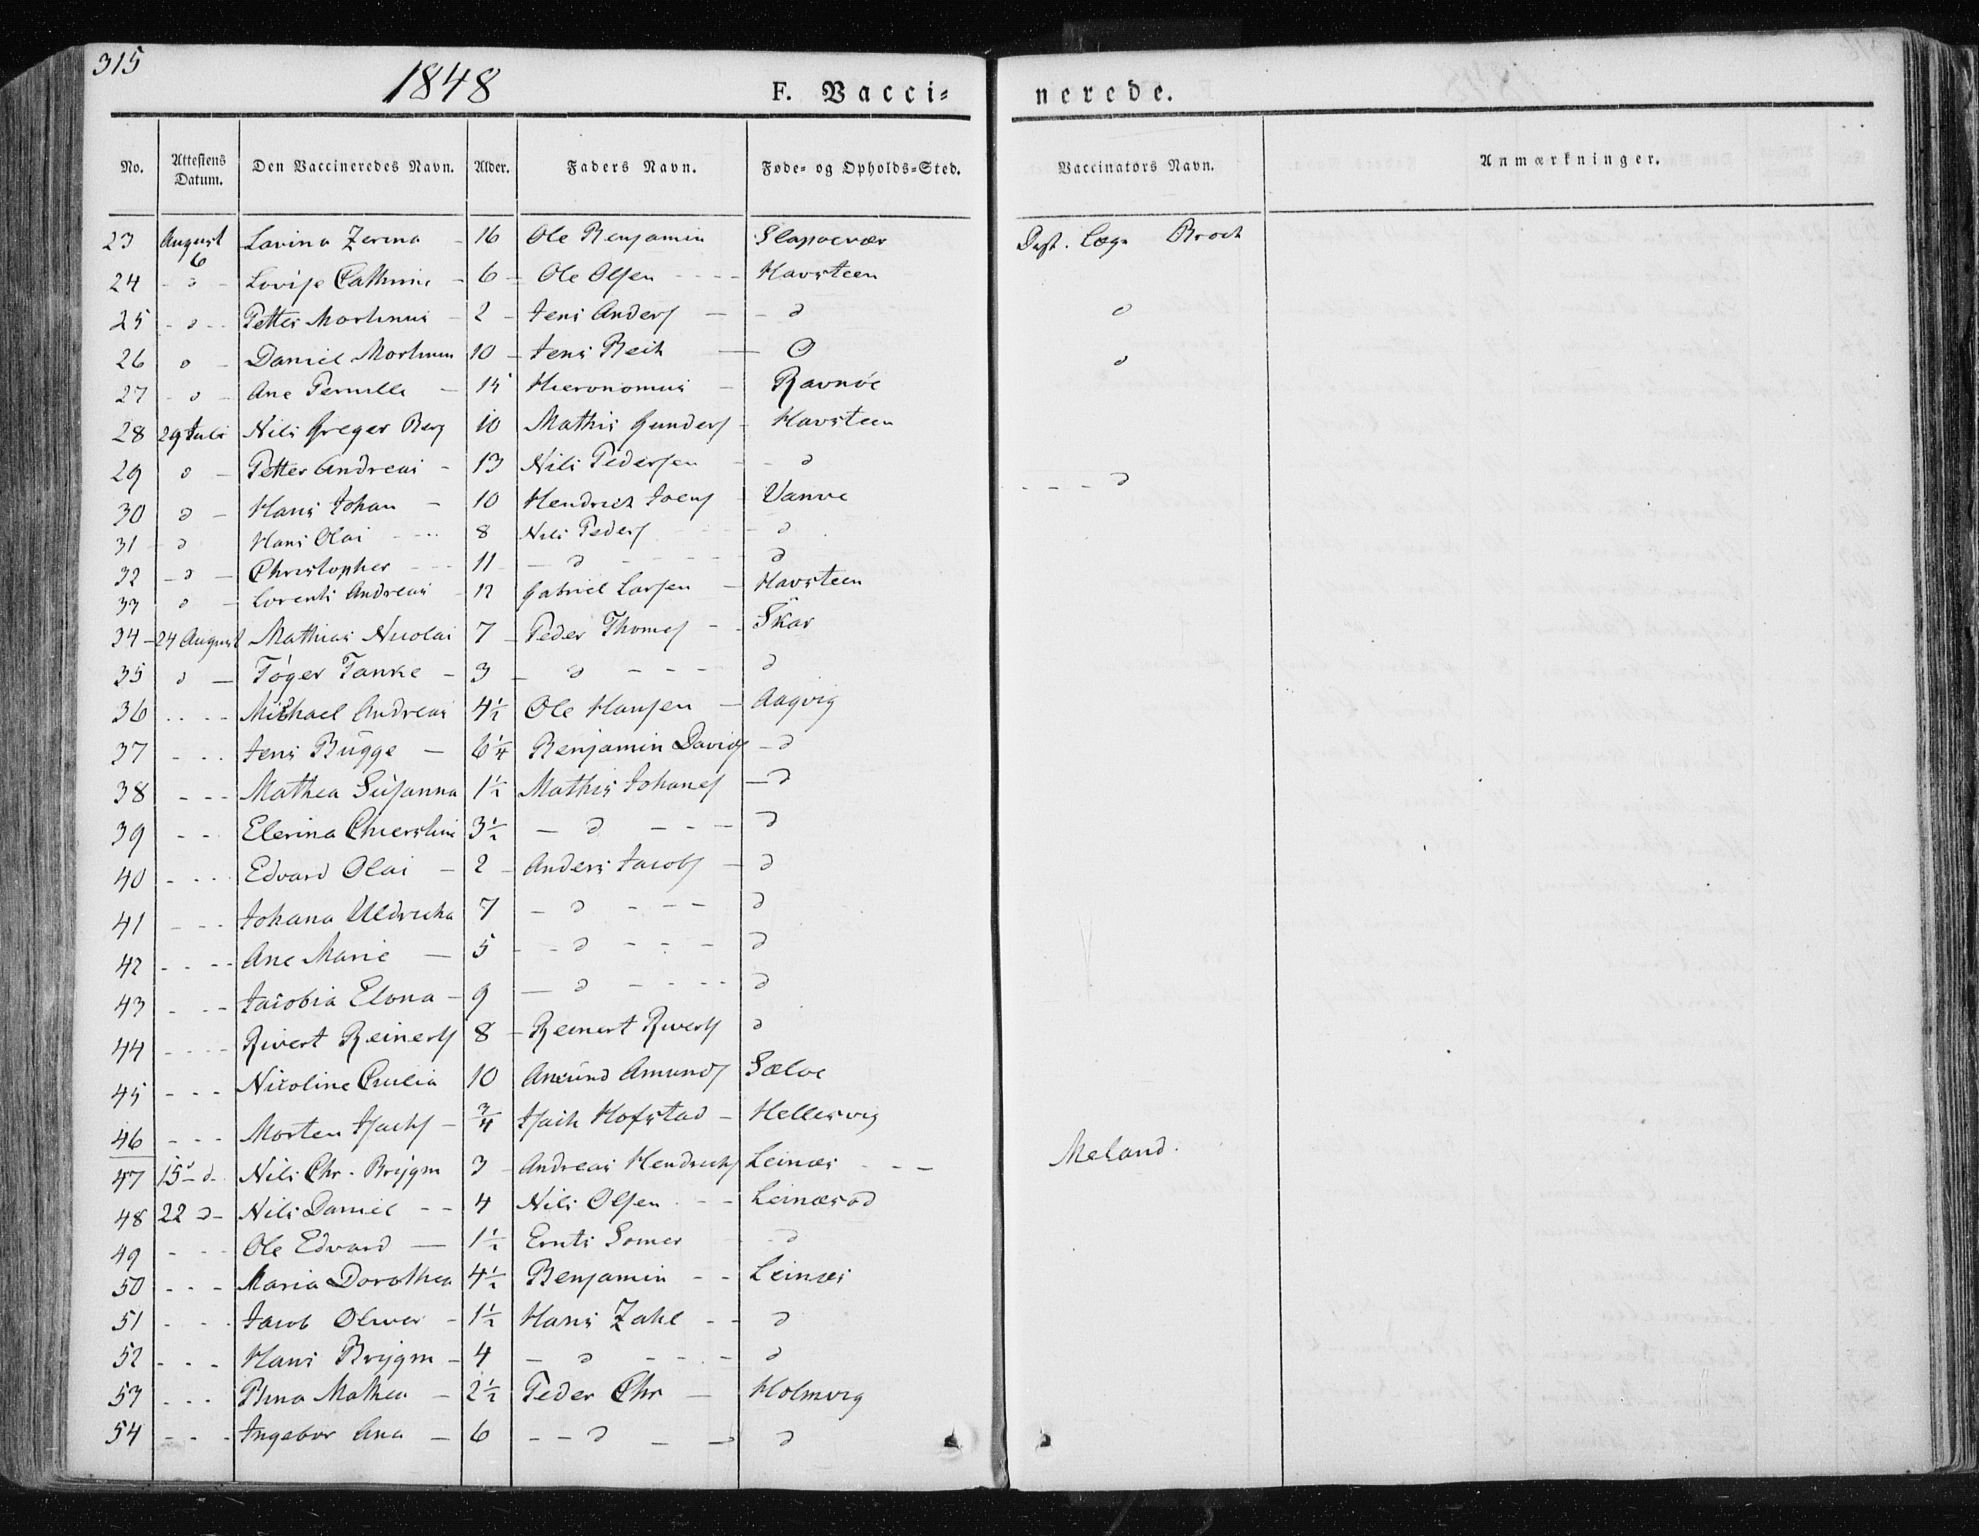 315
1848
F. Vacci=
nerede.
No. Attestens Datum. Den Vaccineredes Navn. Alder. Faders Navn. Føde- og Opholds=Sted. Vaccinators Navn. Anmærkninger.
23 August 6 Lavina Zerina - 16 Ole Benjamin Dist. Læge Broch
24 - d - Lovise - 6 - Ole Olsen - - - - Havsteen
25 - d - - Petter Martinus - 2 - Jens Anders — - d d
26 d - Daniel 10 - Jens — d d
27 - d - Ane Pernille — 15 Hieronomus - Ravnøe
28 29 Juli Nils Greger Berg 10 Mathis Gunders - Havsteen
29 d — Petter Andreas - 13 Nils Pedersen - - d
30 d — Hans Johan - 10 Hendrich - Vanve - - - - d
31 - d Hans Olai - - - - 8 Nils Peders - - d
32 - d — Christopher - - - 11 - — d - - - - - d
33 d - Lorents Andreas - 12 Gabriel Larsen — Havsteen
34 - 24 August Mathias Nicolai 7 - Peder Thomes - - Skar
35 d — Tøger Tanke - 3 - d - - - - d
36 . . - - Michael Andreas 4½ Ole Hansen — Aagvig
37 - - - Jens Bugge — 6¼ Benjamin Davids - d
38 - - - Mathea Susanna 1½ Mathis Johanes — d
39 - - Elerina 3½ — d — - - d
40 - - - - Edvard Olai - 2 - Anders Jacobs — d
41 - - - Johana Uldricha 7 - d - - - d
42 - - - - Ane Marie — 5 - - d - - - d
43 - - - Jacobia Elona - 9 — d - - - - - d
44 - - - - Rivert Reinerts 8 - Reinert Riverts d
45 - - - Nicoline 10 Amund Amunds Sælve
46 - - - Morten - ¾ Hofstad - Hellesvig
47 15 - d - Nils Chr. Brygm 3 - Andreas Hendrichs Leines - - — Meland.
48 22 d - Nils Daniel - - 4 Nils Olsen - - - Leinesød
49 - - - Ole Edvard — 1½ Ernts Somer - d
50 - - - Maria Dorothea 4½ Benjamin - - Leines
51 - - - Jacob Oliver - 1½ Hans Zahl - - d
52 - - - Hans Brygm - 4 - d - - - - d
53 - - - Mathea — 2½ Peder Chr — Holmvig
54 - - - Ingebor Ana — 6 - - d — — d